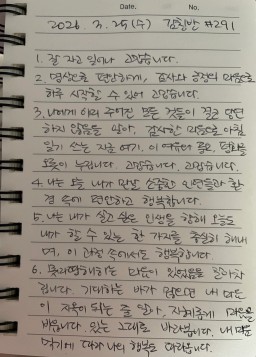 Date.          No.
2026. 3. 25 (수) 감칭반 #291
1. 잘 자고 일어나 고맙습니다.
2. 명상으로 편안하게, 감사와 긍정의 마음으로
하루 시작할 수 있어 고맙습니다.
3. 나에게 이미 주어진 모든 것들이 결코 당연
하지 않음을 알아, 감사한 마음으로 아침
일기 쓰는 지금 여기. 이 여유와 풍요, 평화를
오롯이 누립니다. 고맙습니다. 고맙습니다.
4. 나는 오늘 내가 만날 소중한 인연들과 함
께 속에 편안하고 행복합니다.
5. 나는 내가 살고 싶은 인생을 향해 오늘도
내가 할 수 있는 한 가지를 충실히 해내
며, 이 과정 속에서도 행복합니다.
6. 못마땅해하는 마음이 있었음을 알아차
립니다. 기대하는 바가 많으면 내 마음
이 지옥이 되는 줄 알아, 지혜롭게 마음을
비웁니다. 있는 그대로 바라봅니다. 내 마음
먹기에 따라 나의 행복도 따라옵니다.